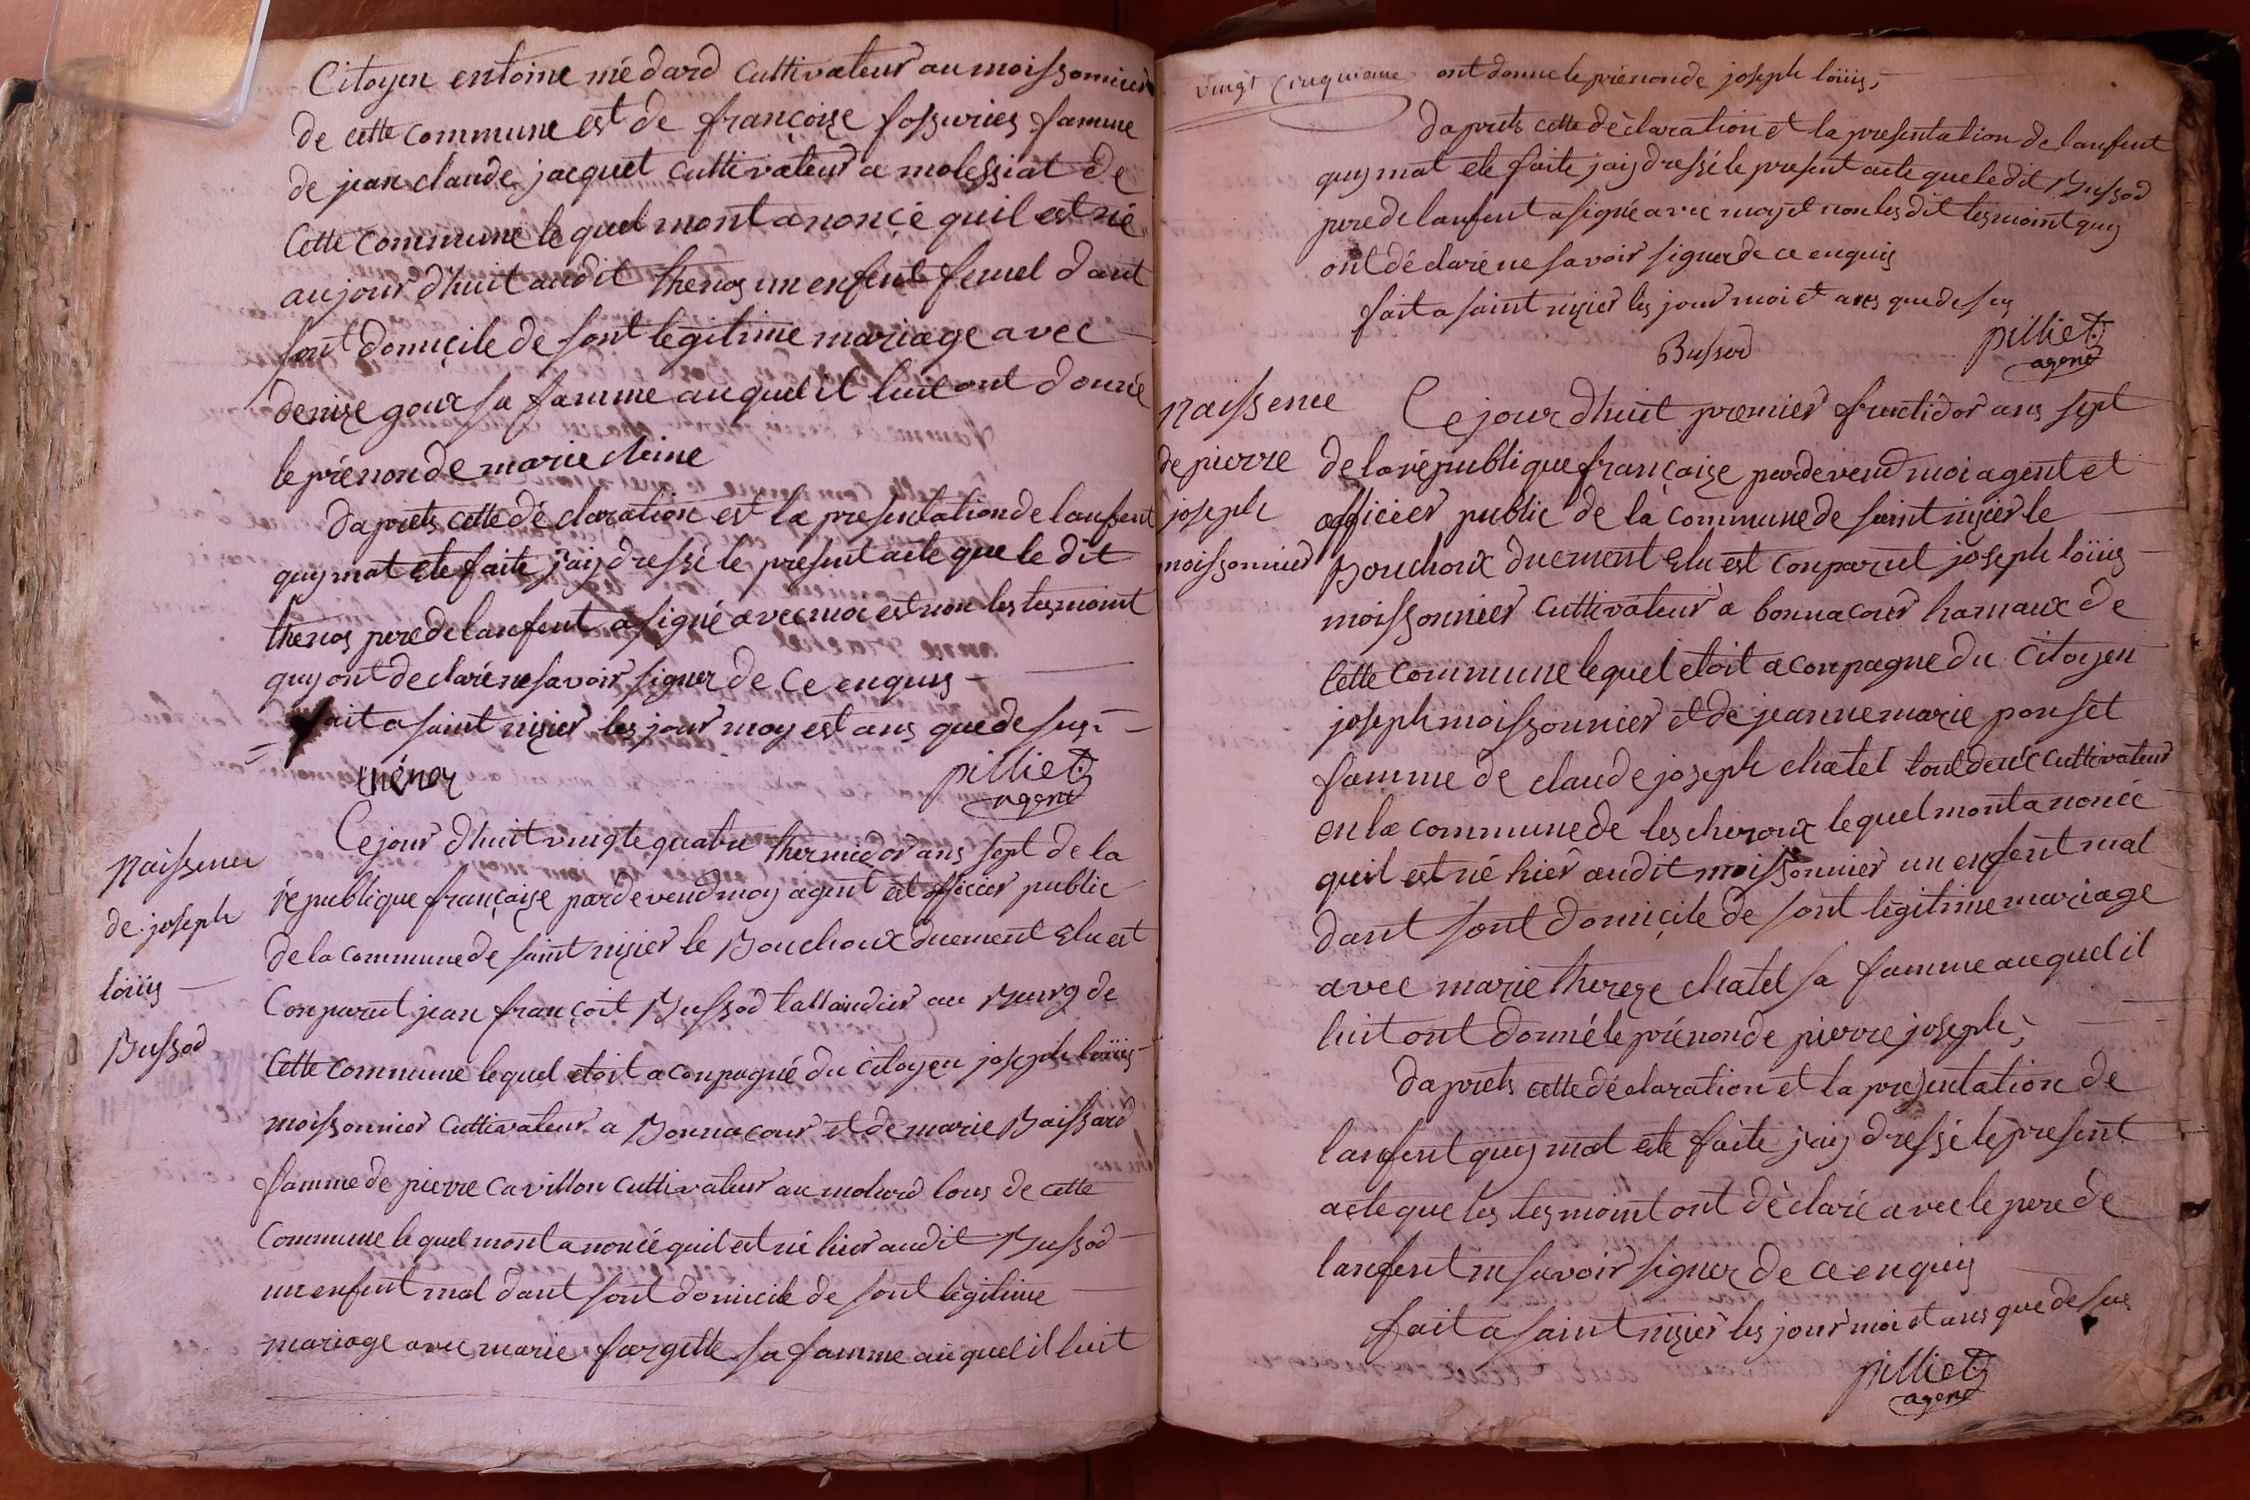 Citoyen entoine médard cultivateur au moissonnier
de cette commune est de françoise fossuries famme
de jean claude jacquet cultivateur a molessiat de
Cette commune le quel mont anoncé quil est né
aujour dhuit audit thenos un enfent femel dant
sont domicile de sont legitime mariage avec
denise goux sa famme auquel il luit ont donné
le prénon de marie
daprets cette dé claration est la presentation de lanfent
quy mat ete faite jaij dressé le présent acte que le dit
thenos pere de lanfent a signé avec moi est non les tesmoint
quy ont declaré ne savoir signer de ce enquis
fait a saint nizier les jour moy est ans que de sus
thénoz pilliet
agent
Naissence
de joseph
loüis
Bussod
Ce jour dhuit vingte quatre thermidor ans sept de la
république françaize pardevend moy agent et officier public
de la commune de saint nizier le Bouchoux duement Elu est
Conparut jean françoit Bussod tallandier au Burg de
Cette commune lequel etoit aconpagné du citoyen joseph loüis
moissonnier cultivateur a Bonnacour et de marie Baissard
famme de pierre cavillon cultivateur au molard tous de cette
Commune le quel mont anoncé quil est né hier audit Bussod
un enfent mal dant sont domicile de sont legitime
mariage avec marie fargette sa famme auquel il luit
vingt cinquieme ont donné le prénon de joseph loüis,
daprets cette déclaration et la presentation de lanfent
quy mat ete faite jaij dressé le present acte que le dit Bussod
pere de lanfent a signé avec moy et non les dit tesmoint quy
ont déclaré ne savoir signer de ce enquis
fait a saint nizier les jour moi et ans que de sus
Bussod pilliet
agent
Naissence
de pierre
joseph
moissonnier
Ce jour dhuit premier fructidor ans sept
de la république françaize pardevend moi agent et
officier public de la commune de saint nizier le
Bouchoux duement Elu est conparut joseph loüis
moissonnier cultivateur a bonnacour hamaux de
Cette commune lequel etoit aconpagne du Citoyen
joseph moissonnier et de jeanne marie ponset
famme de claude joseph chatel tout deux cultivateur
en la commune de lescheroux lequel mont anoncé
quil est né hier audit moissonnier un enfent mal
dant sont domicile de sont légitime mariage
avec marie thereze chatel sa famme auquel il
luit ont donné le prénon de pierre joseph,
daprets cette déclaration et la presentation de
lanfent quy mat ete faite jaij dressé le present
acte que les tesmoint ont déclaré avec le pere de
lanfent ne savoir signer de ce enquis
fait a saint nizier les jour moi et ans que de sus
pilliet
agent